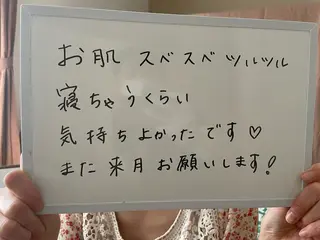 お肌 スベスベ ツルツル
寝ちゃうくらい
気持ちよかったです♡
また来月お願いします!